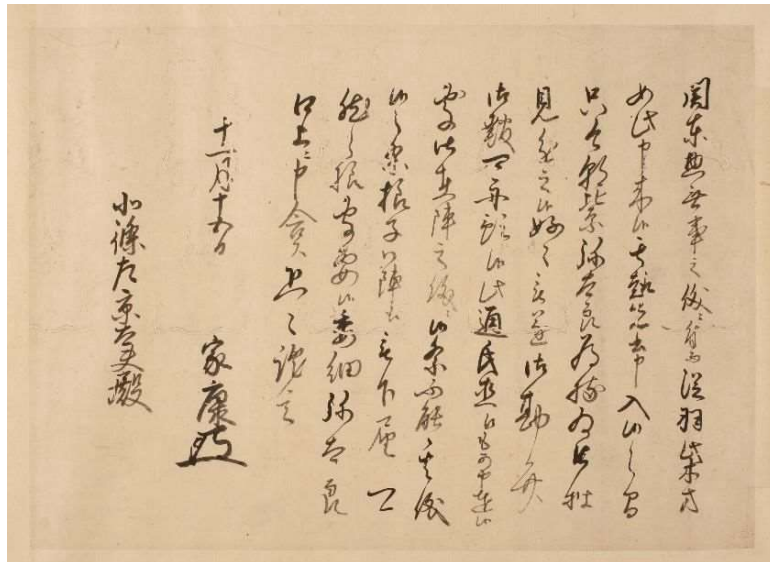 関東惣無事之儀ニ付而従羽柴方
如此申来候其趣先書申入候之間
只今朝比奈弥太郎為持為御披
見進之候好々被遂御勘弁
御報可示預候此通氏直江も可申達候
處御在陣之儀候条不能其儀
候様子御陣へ被付届可
然之様専要候委細弥太郎
口上ニ申含候恐々謹言
十一月十五日
家康
北條左京大夫殿